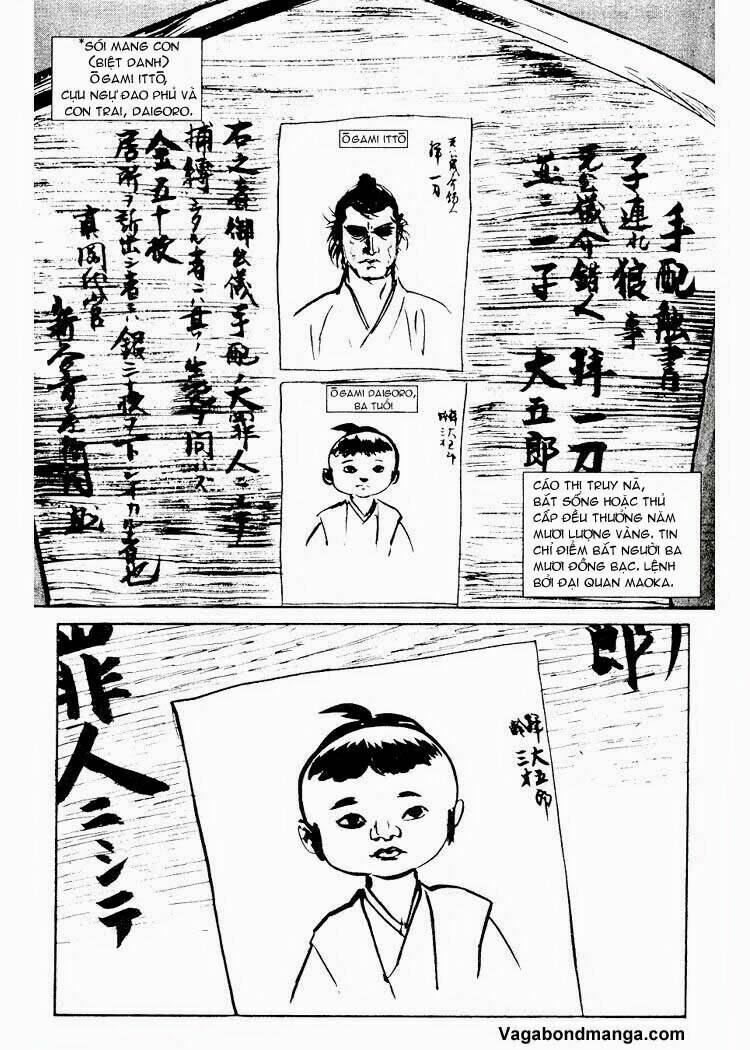 *SÓI MANG CON
(BIỆT DANH)
ŌGAMI ITTŌ,
CỰU NGỰ ĐAO PHỦ VÀ
CON TRAI, DAIGORO.
手配触書
子連れ狼事
公儀介錯人 拝一刀
並ニ一子 大五郎
ŌGAMI ITTŌ
拝一刀
ŌGAMI DAIGORO,
BA TUỔI
拝大五郎
齢三才
右之者御公儀手配ノ大罪人ニシテ
捕縛シタル者ニハ其ノ生死ヲ問ハズ
金五十枚
居所ヲ訴出シ者ニハ銀三十枚ヲ下シオカル者也
真岡代官
CÁO THỊ TRUY NÃ,
BẮT SỐNG HOẶC THỦ
CẤP ĐỀU THƯỞNG NĂM
MƯƠI LƯỢNG VÀNG. TIN
CHỈ ĐIỂM BẮT NGƯỜI BA
MƯƠI ĐỒNG BẠC. LỆNH
BỞI ĐẠI QUAN MAOKA.
郎
拝大五郎
齢三才
罪人ニシテ
Vagabondmanga.com